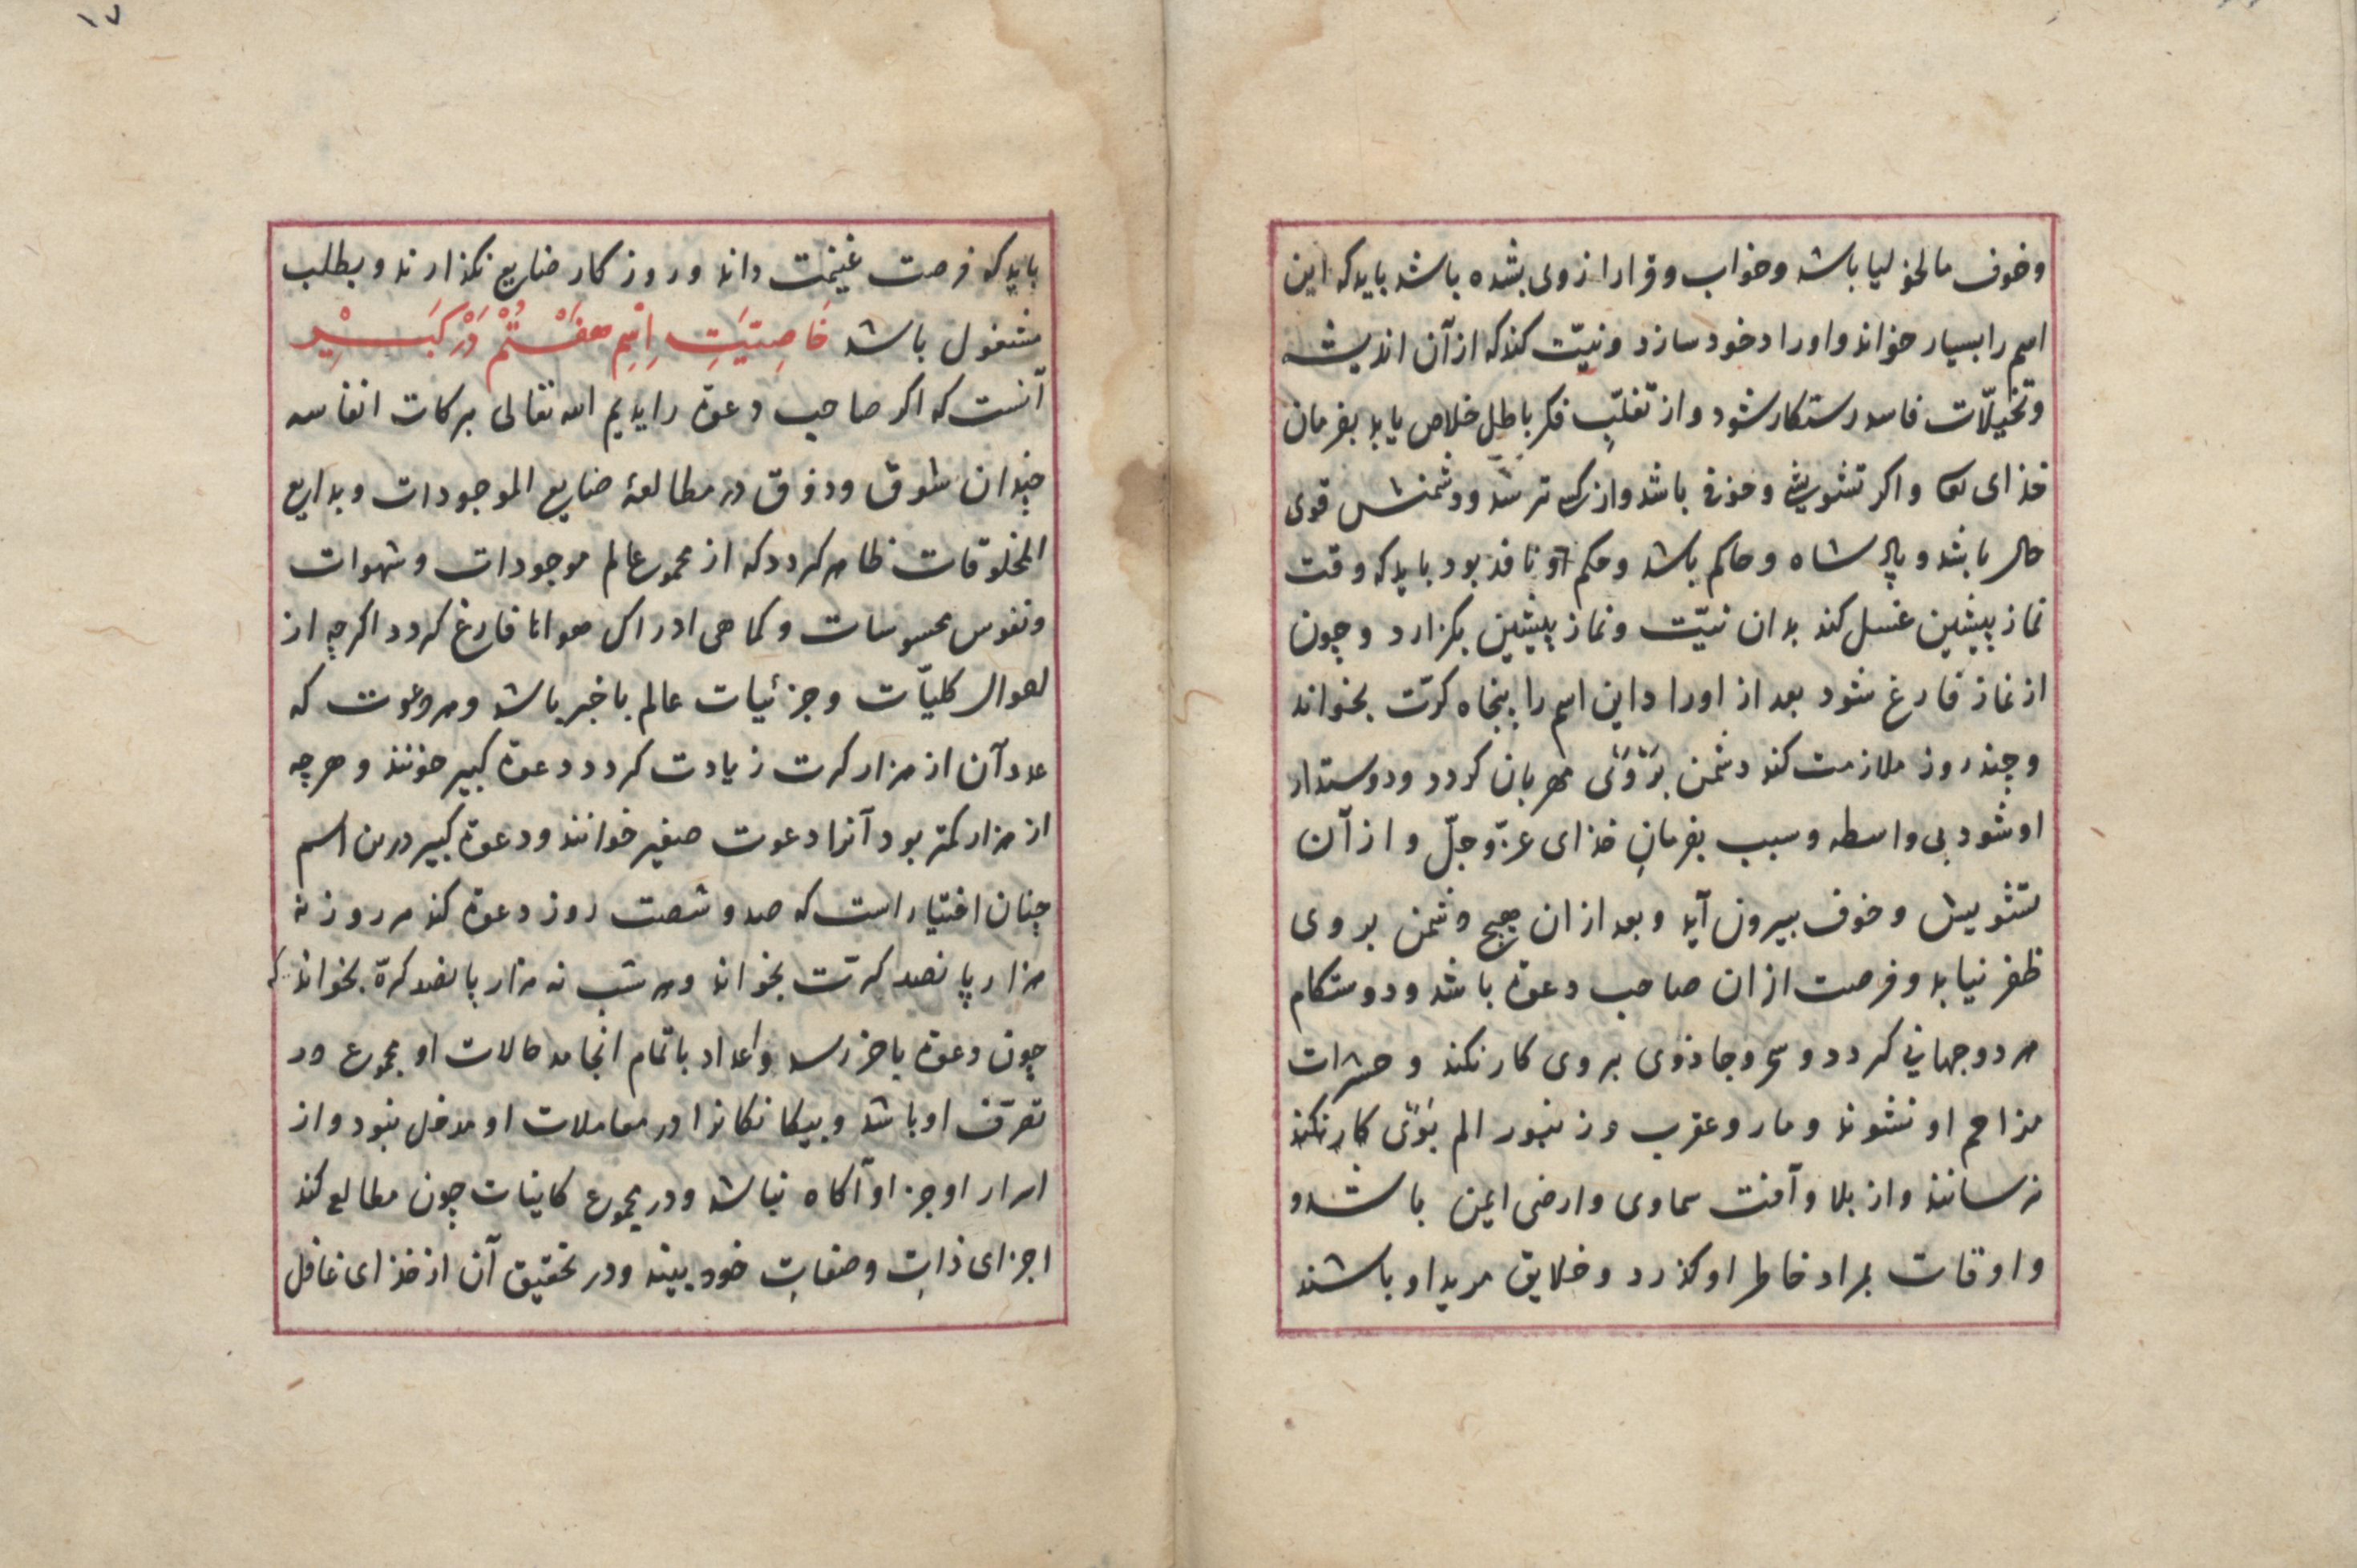 وخوف مالخولیا باشد وخواب وقرار از وی بشده باشد باید که این
اسم را بسیار خواند واوراد خود سازد ونیّت کند که از آن اندیشه
وتخیلّات فاسد رستکار شود واز تغلّبِ فکر باطل خلاص یابد بفرمان
خذای واکر تشویش وخوف باشد واز کسی ترسد ودشمنش قوی
حال باشد و پادشاه وحاکم باشد وحکم او نافذ بود باید که وقت
نماز پیشین غسل کند بدان نیّت ونماز پیشین بکزارد وچون
از نماز فارغ شود بعد از اوراد این اسم را پنجاه کرّت بخواند
وچند روز ملازمت کند دشمن بَرْوَیْ مهربان کردد ودوستدار
او شود بی واسطه وسبب بفرمانِ خذای عزّ وجلّ واز آن
تشویش وخوف بیرون آید وبعد ازان هیچ دشمن بروی
ظفر نیابد وفرصت ازان صاحب دعوة باشد ودوستکام
هر دو جهانی کردد وسحر وجاذوی بروی کار نکند وحشرات
مزاحم او نشوند ومار وعقرب وزنبور الم بَوَیْ کار نکند
نرسانند واز بلا وآفت سماوی وارضی ایمن باشد و
واوقات بمراد خاطر او کذرد وخلایق مرید او باشند
۱۷
باید که فرصت غنیمت داند وروزکار ضایع نکذارند وبطلب
مشغول باشد خَاصِیَّتِ اِسْمِ هفَتُمْ دَرْ کَبِیْر
آنست که اکر صاحب دعوة را یدیم الله تعالی برکات انفاسه
چندان شوق وذوق در مطالعهٔ صنایع الموجودات وبدایع
المخلوقات ظاهر کردد که از مجموع عالم موجودات وشهوات
ونفوس محسوسات وکماهی ادراک هوانا فارغ کردد اکرچه از
احوال کلیاّت وجزئیات عالم باخبر باشد وهر دعوت که
عدد آن از هزار کرت زیادت کردد دعوة کبیر خونند وهرچه
از هزار کمتر بود آنرا دعوت صغیر خوانند ودعوة کبیر درین اسم
چنان اختیار است که صد وشصت روز دعوة کند هر روز نه
هزار پانصد کرّت بخواند وهر شب نه هزار پانصد کرة بخواند که
چون دعوة باخر رسد واعداد باتمام انجامد حالات او مجموع در
تصرّف او باشد وبیکانکانرا در معاملات او مدخل نبود واز
اسرار او جز او آکاه نباشد ودر مجموع کاینات چون مطالع کند
اجزای ذاتِ وصفاتِ خود بیند ودر تحقیق آن از خذای غافل